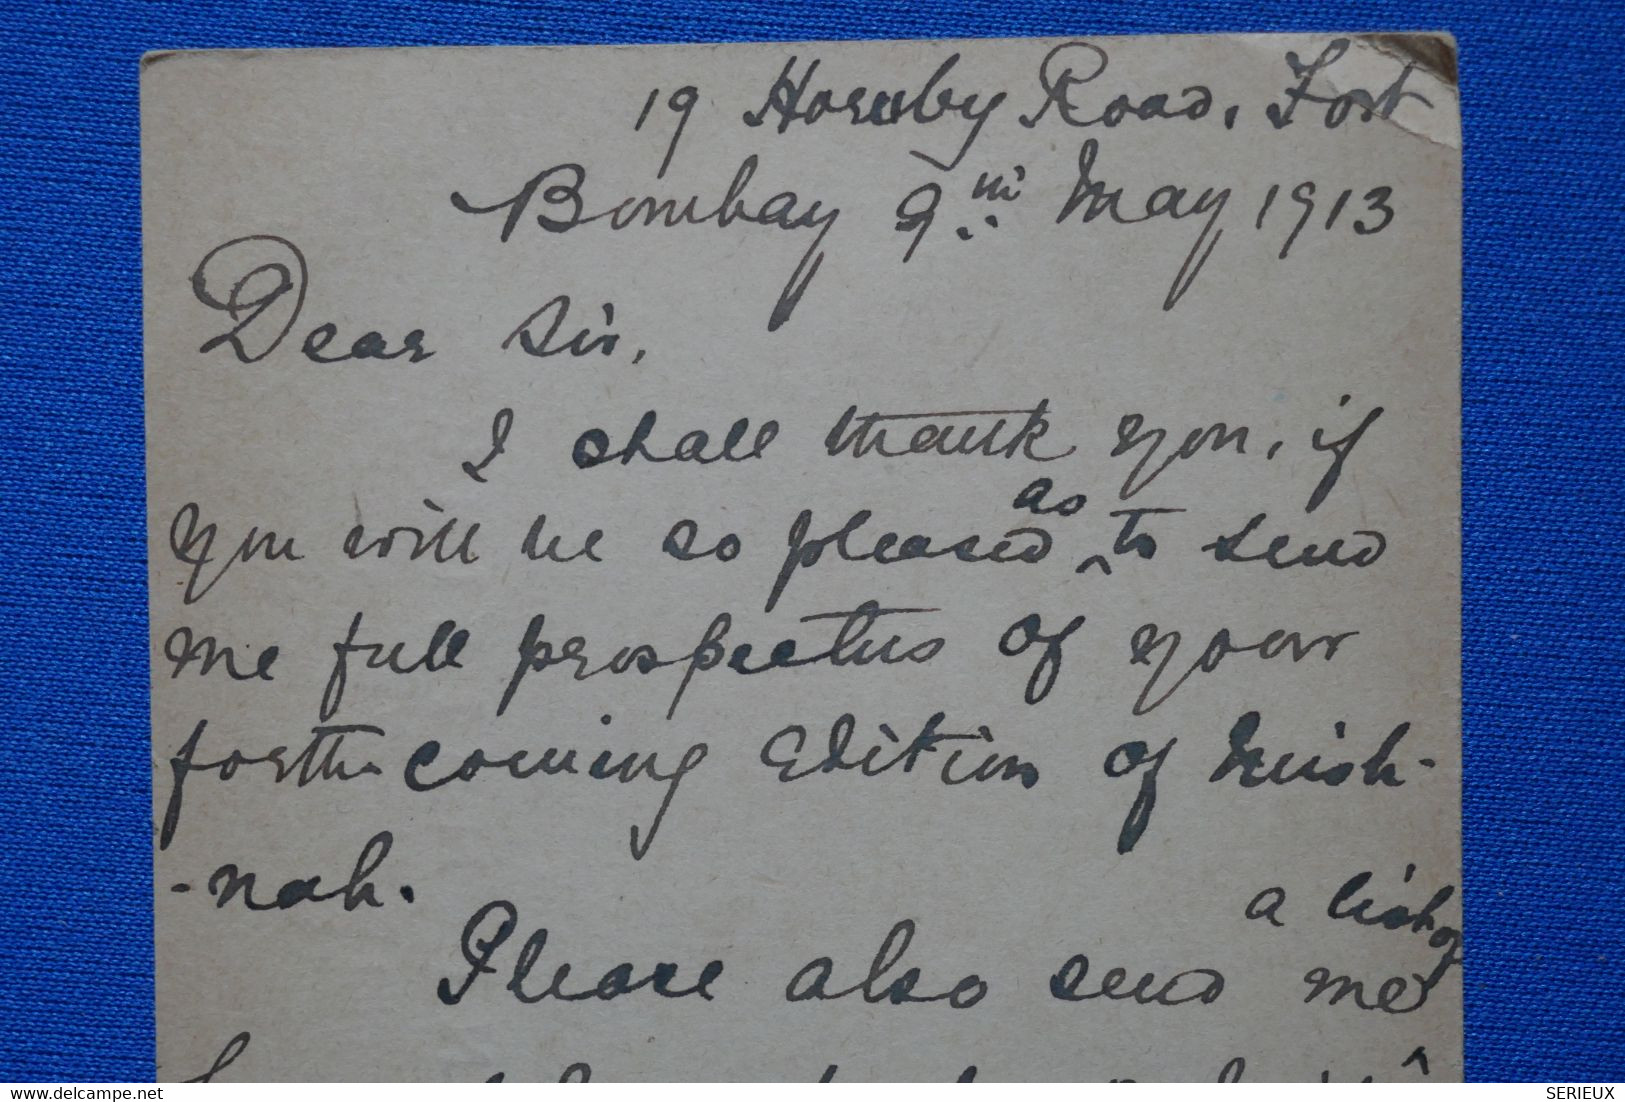 19 Hornby Road, Fort
Bombay 9th May 1913
Dear Sir,
I shall thank you, if
you will be so pleased as to send
me full prospectus of your
forth coming Edition of Mish-
-nah.
Please also send me a list of
SERIEUX